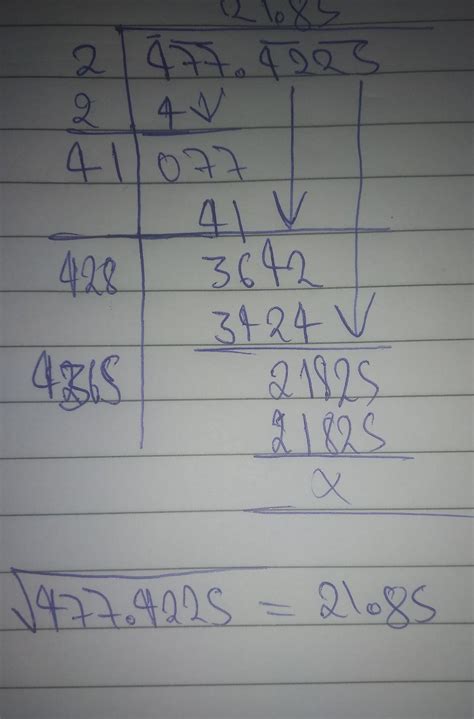 21.85
2 477.4225
2 4
41 077
41
428 3642
3424
4365 21825
21825
x
√477.4225 = 21.85